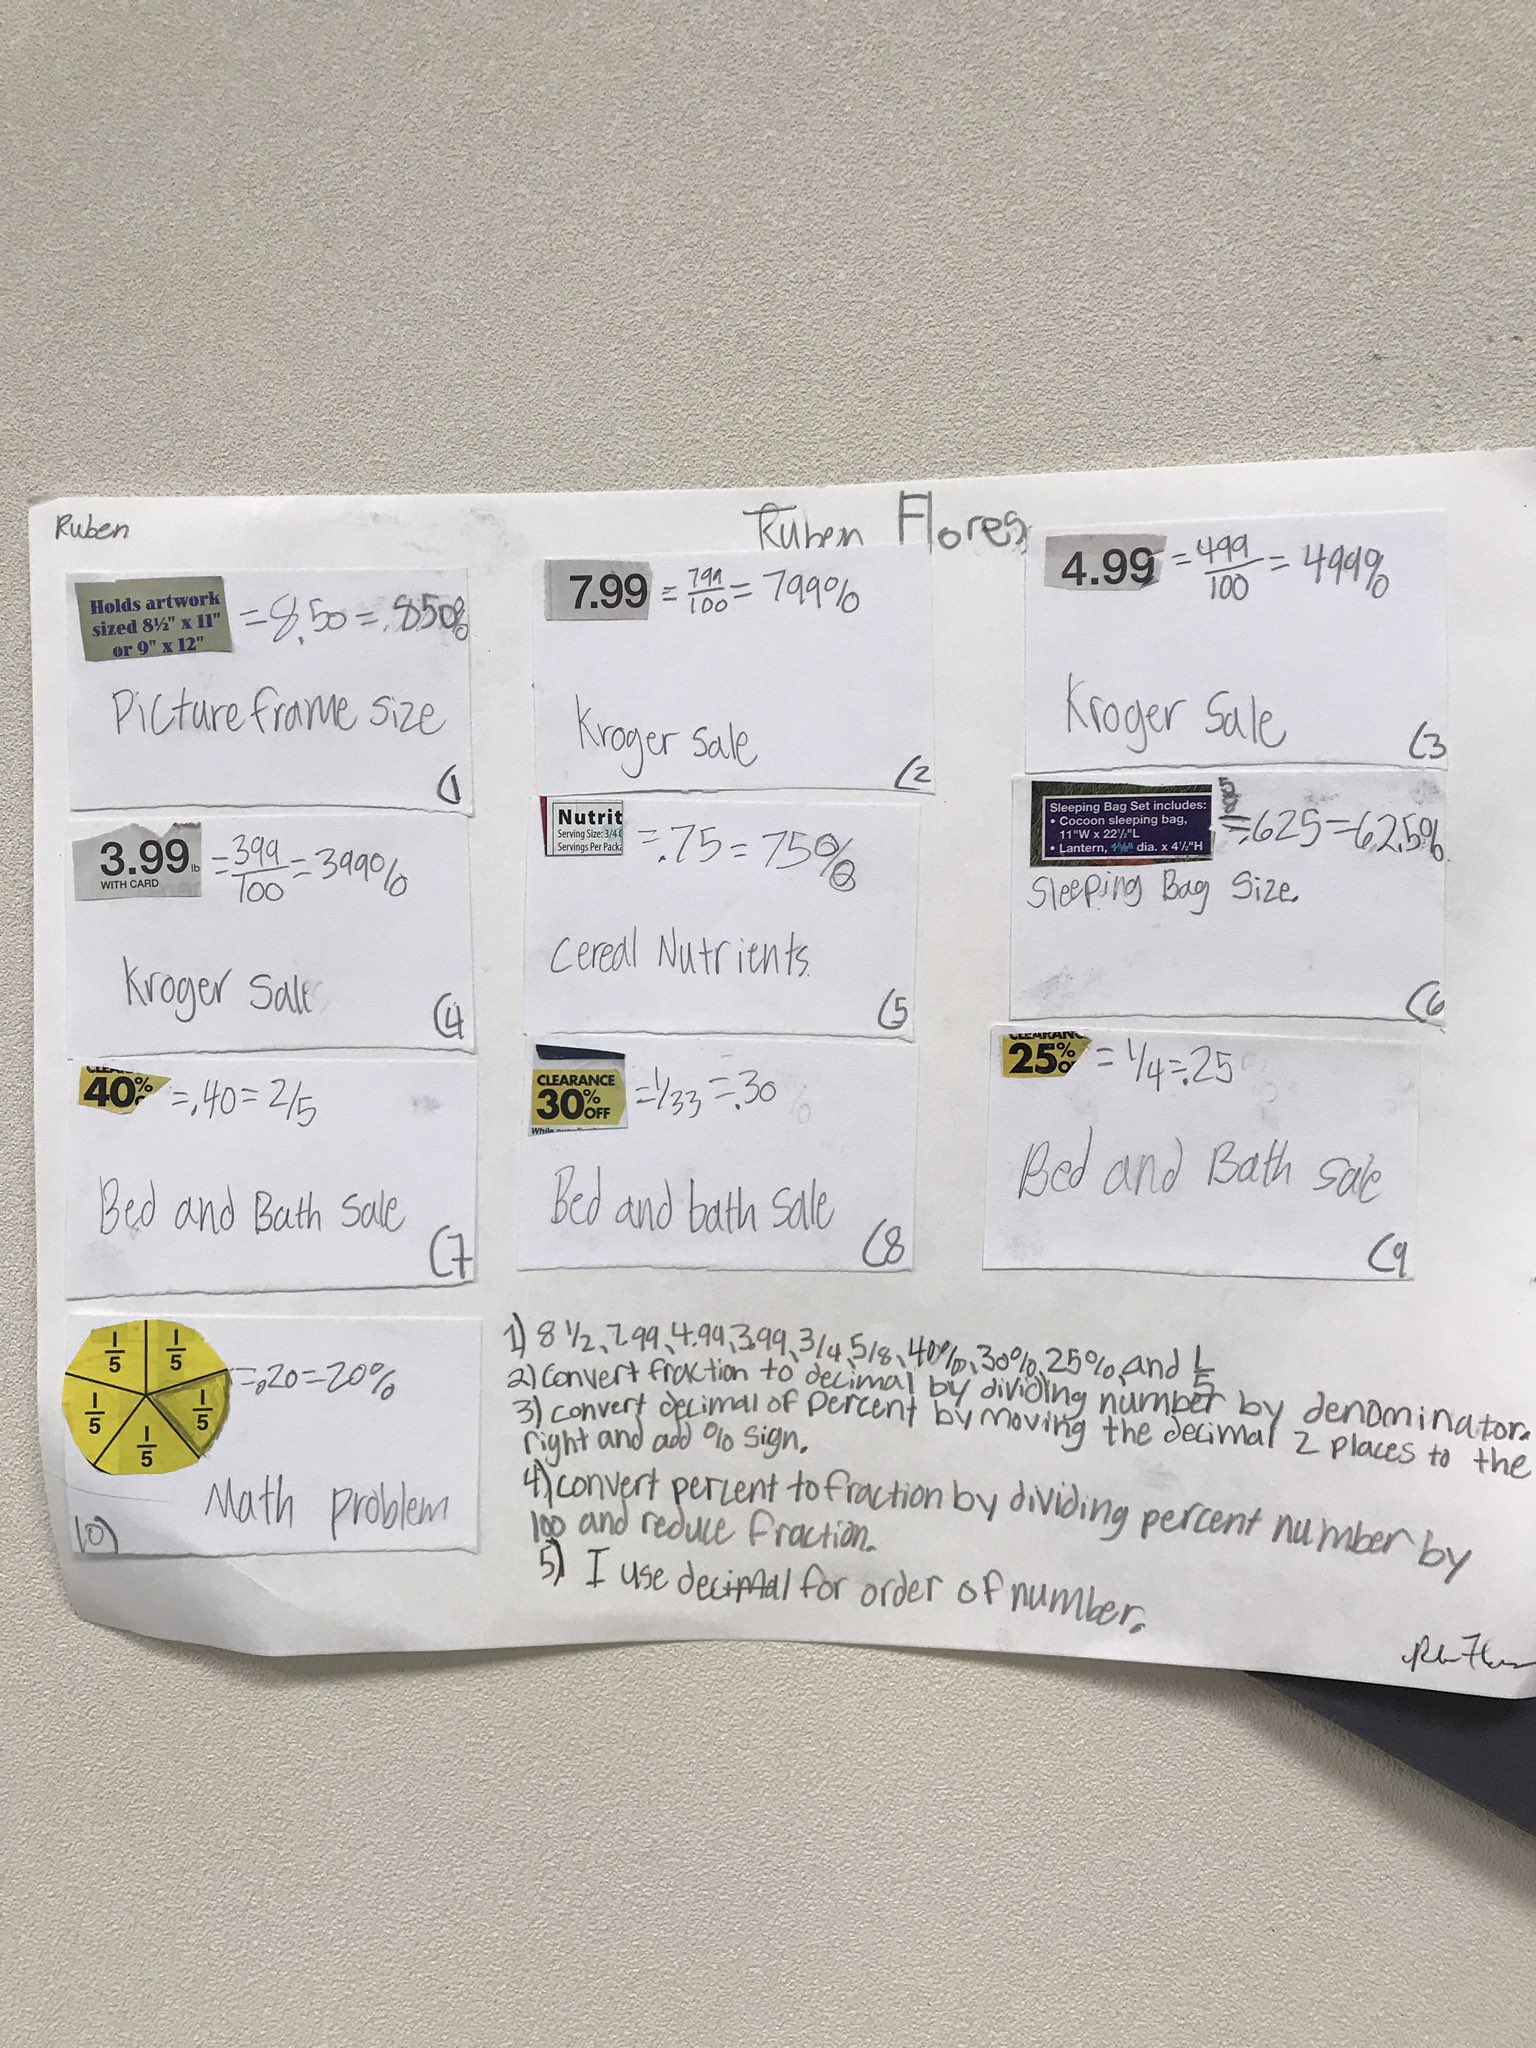 Ruben
Ruben Flores
Holds artwork
sized 8½" x 11"
or 9" x 12"
= 8.50 = 850%
Picture frame size
(1
7.99 = 799/100 = 799%
Kroger Sale
(2
4.99 = 499/100 = 499%
Kroger Sale
(3
3.99 lb
WITH CARD
= 399/100 = 399%
Kroger Sale
(4
Nutrit
Serving Size: 3/4
Servings Per Packa
= .75 = 75%
Cereal Nutrients
(5
Sleeping Bag Set includes:
• Cocoon sleeping bag,
11"W x 22½"L
• Lantern, dia. x 4½"H
= .625 = 62.5%
Sleeping Bag Size.
(6
40% = .40 = 2/5
Bed and Bath Sale
(7
CLEARANCE
30% OFF
= 1/33 = .30
Bed and bath Sale
(8
CLEARANC
25% = 1/4 = .25
Bed and Bath Sale
(9
1/5 1/5 1/5 1/5 1/5
= .20 = 20%
Math problem
10)
1) 8 1/2, 7.99, 4.99, 3.99, 3/4, 5/8, 40%, 30%, 25%, and 1/5
2) Convert fraction to decimal by dividing number by denominator.
3) convert decimal of Percent by moving the decimal 2 places to the
right and add % sign.
4) Convert percent to fraction by dividing percent number by
100 and reduce fraction.
5) I use decimal for order of number.